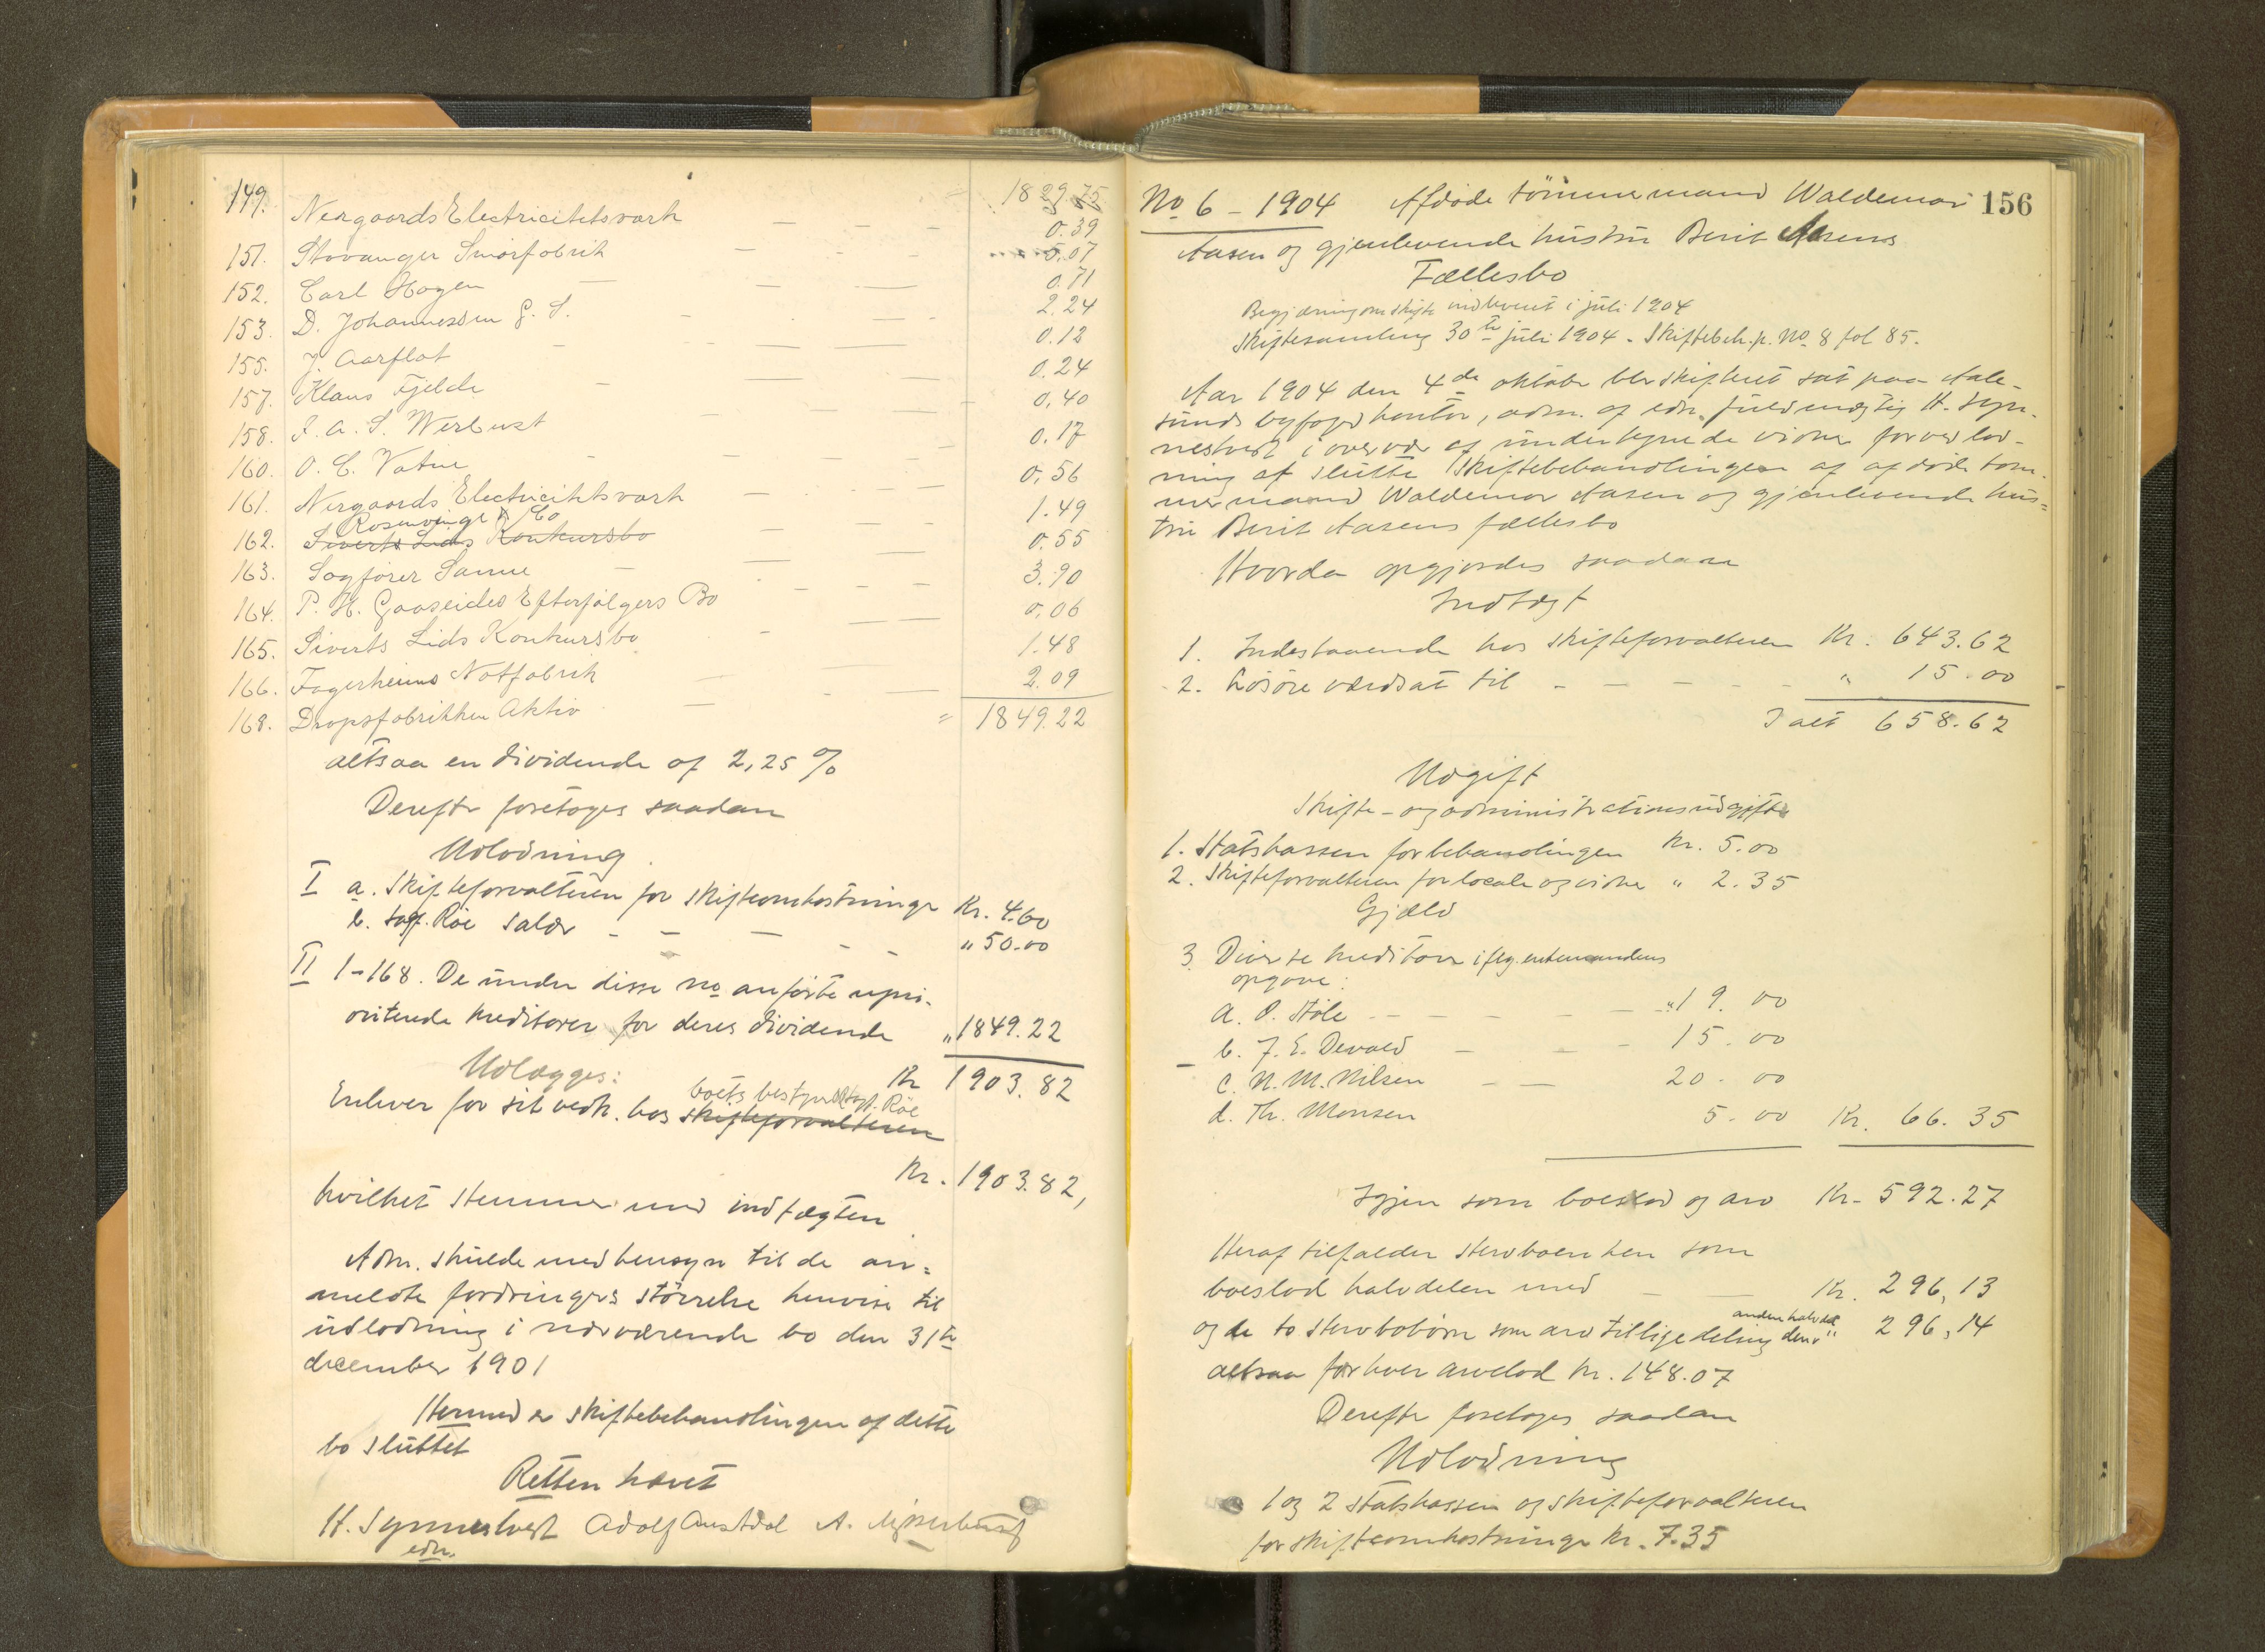 149. Nergaards Electricitetsværk — 1829.75
0.39
151. Stavanger Smørfabrik — 5.07
152. Carl Hagen — 0.71
153. D. Johannessen G. S. — 2.24
155. J. Aarflot — 0.12
157. Klaus Fjelde — 0.24
158. J. A. S. Werlust — 0.40
160. O. C. Vatne — 0.17
161. Nergaards Electricitetsværk — 0.56
Rosenvinge & Co
162. Siverts Lids Konkursbo — 1.49
163. Sagfører Sanne — 0.55
164. P. H. Gaaseides Efterfølgers Bo — 3.90
165. Siverts Lids Konkursbo — 0.06
166. Fagerheims Notfabrik — 1.48
168. Dropsfabrikken Aktiv — 2.09
= 1849.22
altsaa en dividende af 2,25 %
Derefter foretoges saadan
Udlodning.
I a. Skifteforvalteren for skifteomkostninger Kr. 4.60
b. sagf. Röe salær — — — " 50.00
II 1-168. De under disse No anførte upri-
oriterede kreditorer for deres dividende " 1849.22
Kr 1903.82
Udlægges:
boets bestyrer sagf. Röe
Enhver for sit vedk. hos skifteforvalteren
Kr. 1903.82,
hvilket stemmer med indtægten
Adm. skulde med hensyn til de an=
meldte fordringers størrelse henvise til
udlodning i nærværende bo den 31te
december 1901
Hermed er skiftebehandlingen af dette
bo sluttet
Retten hævet
H. Synnestvedt Adolf Austdal A.
edn.
No 6 - 1904 Afdøde tømmermand Waldemar 156
Aasen og gjenlevende hustru Berit Aasens
Fællesbo
Begjæring om skifte indleveret i juli 1904
Skiftesamling 30te juli 1904 - Skiftebeh.p. No 8 fol 85.
Aar 1904 den 4de oktober blev skifteret sat paa Aale-
sunds byfogedkontor, adm. af edsv. fuldmægtig H. Syn-
nestvedt i overvær af undertegnede vidner for ved lod-
ning at slutte skiftebehandlingen af afdøde tøm-
mermand Waldemar Aasen og gjenlevende hus=
tru Berit Aasens fællesbo
Hvorda opgjordes saadan
Indtægt
1. Indestaaende hos skifteforvalteren Kr. 643.62
2. Løsøre værdsat til — — — — — " 15.00
I alt 658.62
Udgift
Skifte- og administrationsudgifter
1. Statskassen for behandlingen Kr. 5.00
2. Skifteforvalteren for locale og vidner " 2.35
Gjæld
3. Diverse kreditorer iflg. enkemandens
opgave:
a. O. Stöle — — — — — " 19.00
b. J. E. Devold — — — 15.00
c. N. M. Nilsen — — 20.00
d. Th. Monsen 5.00 Kr. 66.35
Igjen som boeslod og arv Kr. 592.27
Heraf tilfalder stervboenken som
boeslod halvdelen med — — Kr. 296,13
anden halvdel
og de to stervbobørn som arv til lige deling den " 296,14
altsaa for hver arvelod Kr. 148.07
Derefter foretoges saadan
Udlodning
1 og 2 Statskassen og skifteforvalteren
for skifteomkostninger Kr. 7.35